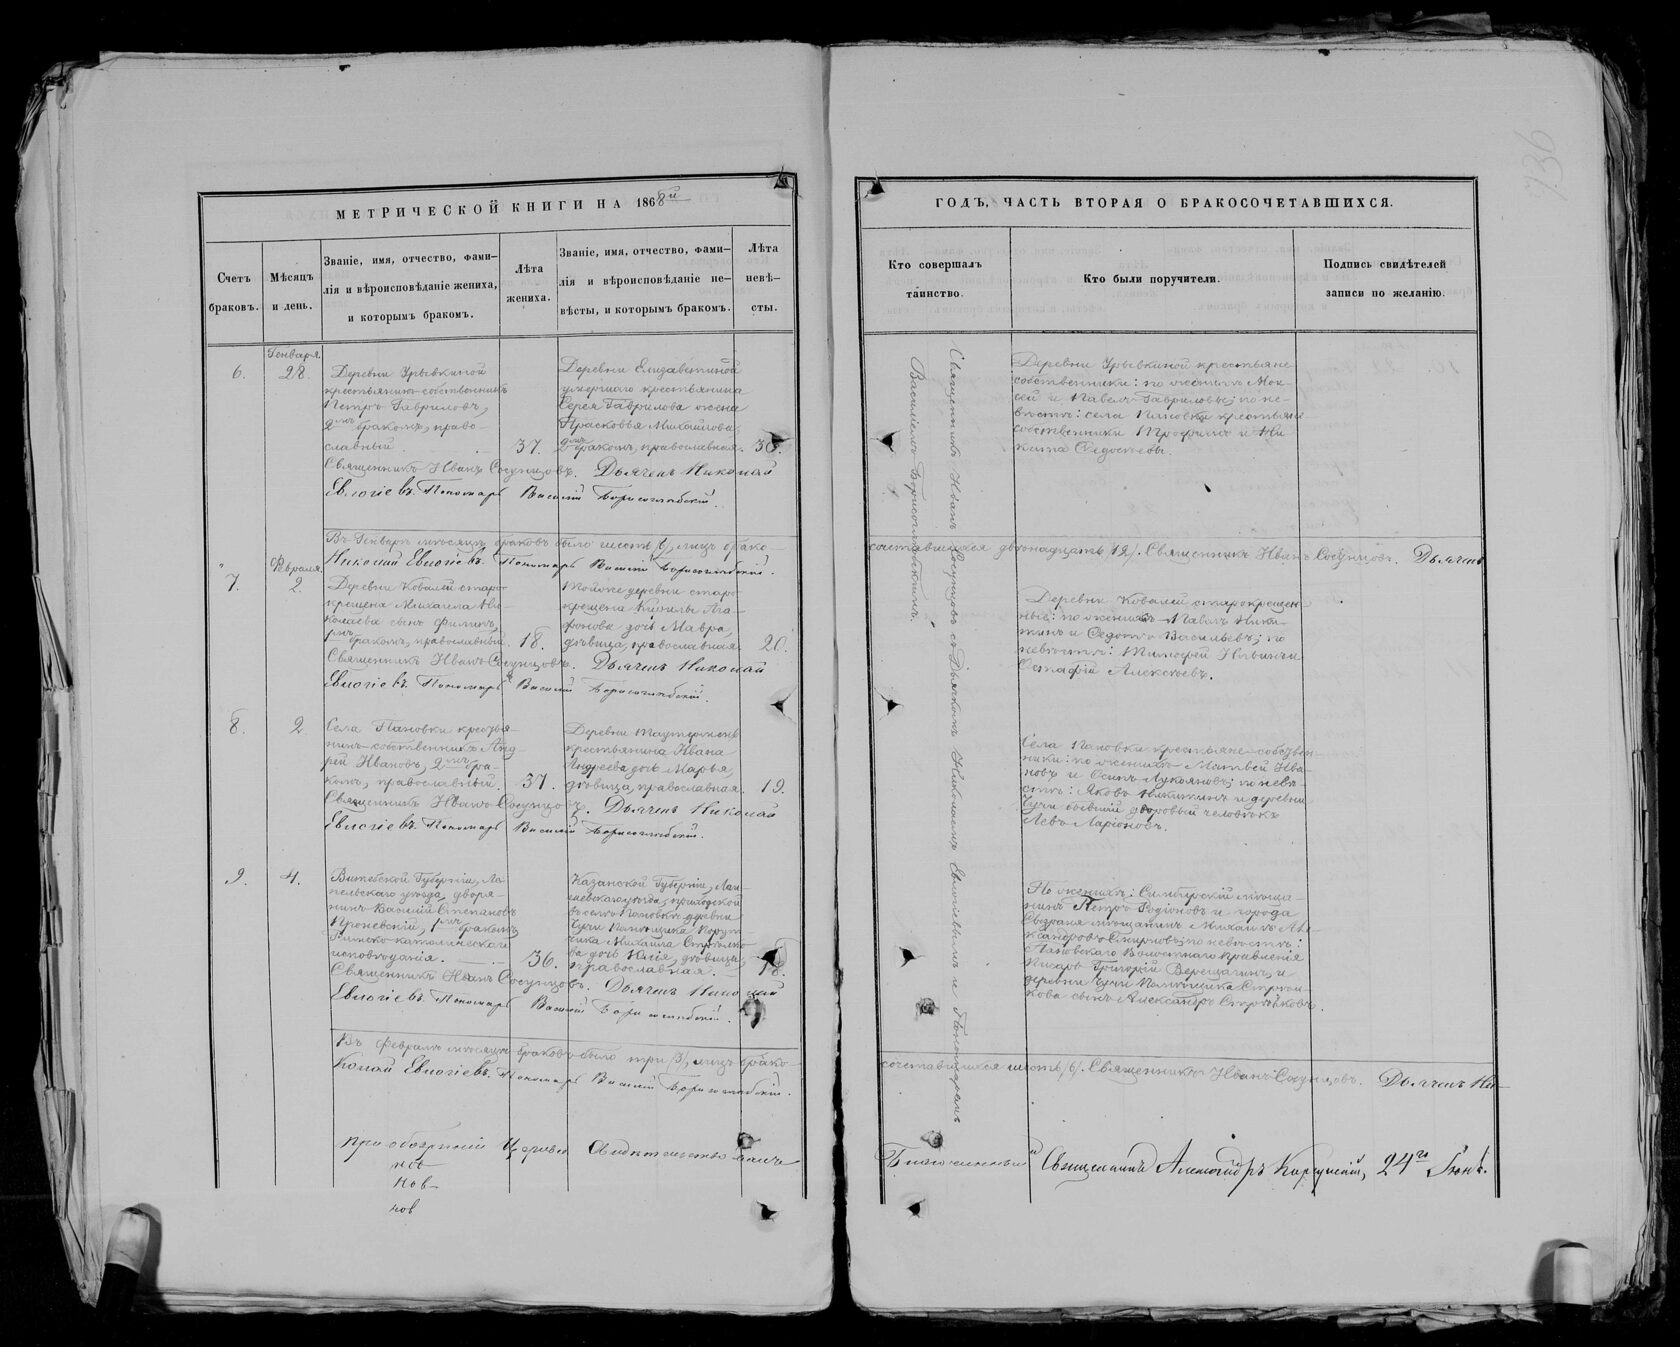 МЕТРИЧЕСКОЙ КНИГИ НА 1868й
Счетъ браковъ.
Мѣсяцъ и день.
Званіе, имя, отчество, фами-
лія и вѣроисповѣданіе жениха,
и которымъ бракомъ.
Лѣта
жениха.
Званіе, имя, отчество, фами-
лія и вѣроисповѣданіе не-
вѣсты, и которымъ бракомъ.
Лѣта
невѣ-
сты.
6.
Генваря
28.
Деревни Урывкиной
крестьянинъ-собственникъ
Петръ Гавриловъ,
2мъ бракомъ, право-
славный.
37.
Деревни Елизаветиной
умершаго крестьянина
Гаврилова жена
Прасковья Михайлова
2мъ бракомъ, православная.
Священникъ Иванъ Сосунцовъ. Дьячекъ Николай
Евлогіевъ. Пономарь Василій Борисоглѣбскій.
Въ Генварѣ мѣсяцѣ браковъ было шесть /6/, лицъ брако-
Николай Евлогіевъ. Пономарь Василій Борисоглѣбскій.
7.
Февраля
2.
Деревни Ковалей старо-
крещена Михаила Ни-
колаева сынъ Филипъ,
1мъ бракомъ, православный.
18.
Тойже деревни старо-
крещена Кирилы Ага-
фонова дочь Мавра,
дѣвица, православная.
20.
Священникъ Иванъ Сосунцовъ. Дьячекъ Николай
Евлогіевъ. Пономарь Василій Борисоглѣбскій.
8.
2
Села Пановки крестья-
нинъ-собственникъ Анд-
рей Ивановъ, 2мъ бра-
комъ, православный.
37.
Деревни
крестьянина Ивана
Андреева дочь Марья,
дѣвица, православная.
19.
Священникъ Иванъ Сосунцовъ. Дьячекъ Николай
Евлогіевъ. Пономарь Василій Борисоглѣбскій.
9.
4.
Витебской Губерніи, Ле-
пельскаго уѣзда, дворя-
нинъ Василій Степановъ
1мъ бракомъ
Римско-католическаго
исповѣданія.
36.
Казанской Губерніи, Лаи-
шевскаго уѣзда, приходской
въ селѣ Пановкѣ деревни
помѣщика Порут-
чика Михаила Стрѣлко-
ва дочь Юлія, дѣвица,
православная.
18.
Священникъ Иванъ Сосунцовъ. Дьячекъ Николай
Евлогіевъ. Пономарь Василій Борисоглѣбскій.
Въ Февралѣ мѣсяцѣ браковъ было три /3/, лицъ брако-
колай Евлогіевъ. Пономарь Василій Борисоглѣбскій.
При обозрѣніи Церкви свидѣтельствовалъ
нов
нов
ГОДЪ, ЧАСТЬ ВТОРАЯ О БРАКОСОЧЕТАВШИХСЯ.
Кто совершалъ
таинство.
Кто были поручители.
Подпись свидѣтелей
записи по желанію.
Священникъ Иванъ Сосунцовъ съ Дьячкомъ Николаемъ Евлогіевымъ и Пономаремъ
Василіемъ Борисоглѣбскимъ.
Деревни Урывкиной крестьяне
собственники: по женихѣ Мои-
сей и Павелъ Гавриловы; по не-
вѣстѣ: села Пановки крестьяне
собственники Трофимъ и Ни-
кита Ѳедосѣевы.
сочетавшихся двѣнадцать /12/. Священникъ Иванъ Сосунцовъ. Дьячекъ
Деревни Ковалей старокрещен-
ные: по женихѣ Павелъ Ники-
тинъ и Ѳедотъ Васильевъ; по
невѣстѣ: Тимоѳей Никитинъ и
Естафій Алексѣевъ.
Села Пановки крестьяне-собствен-
ники: по женихѣ Матвей Ива-
новъ и Осипъ Лукояновъ; по невѣ-
стѣ: Яковъ Никитинъ и деревни
бывшій дворовый человѣкъ
Левъ Ларіоновъ.
По женихѣ: Симбирскій мѣща-
нинъ Петръ Родіоновъ и города
Сызраня мѣщанинъ Михаилъ Але-
ксандровъ Смирновъ; по невѣстѣ:
Пановскаго Волостнаго правленія
писарь Григорій Верещагинъ, и
деревни помѣщика Стрѣл-
кова сынъ Александръ Стрѣлковъ.
сочетавшихся шесть /6/. Священникъ Иванъ Сосунцовъ. Дьячекъ Ни-
Благочинный Священникъ Александръ 24го Іюня.